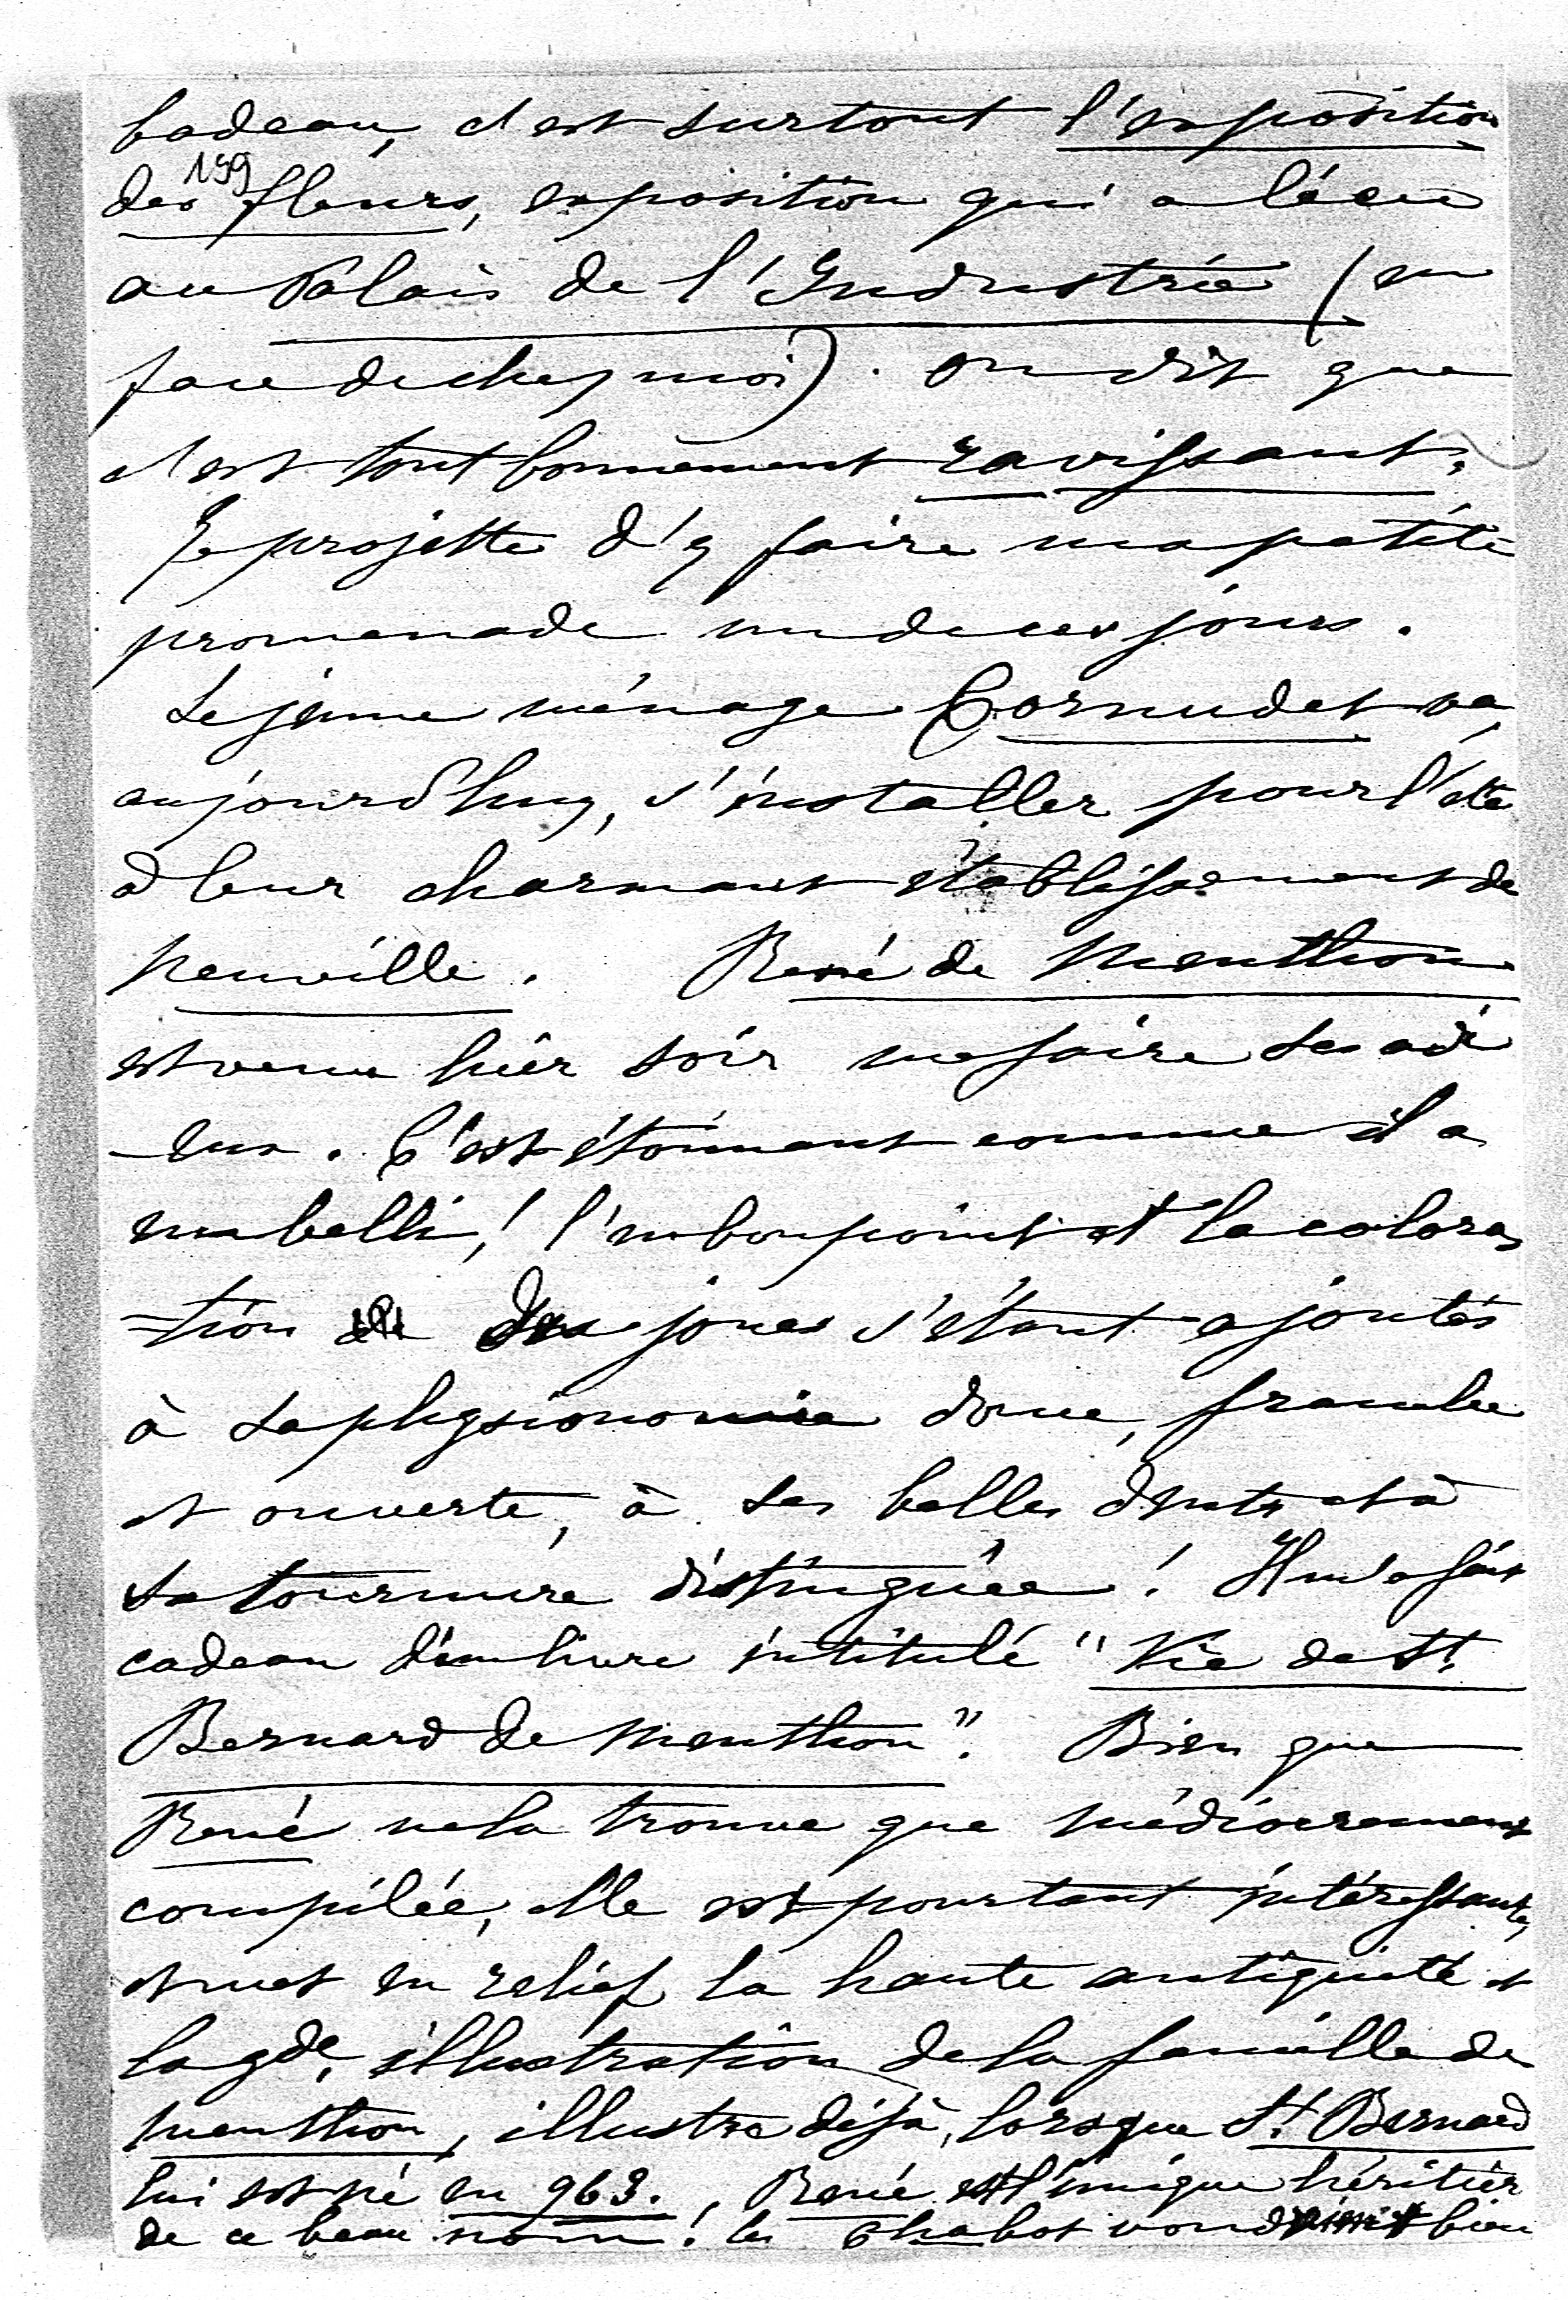 badeau, c'est surtout l'exposition
159
des fleurs, exposition qui a lieu
au Palais de l'Industrie (en
face de chez moi). On dit que
c'est tout bonnement ravissant.
Je projette d'y faire ma petite
promenade un de ces jours.
Le jeune ménage Cornudet va,
aujourd'huy, s'installer pour l'été
à leur charmant établissement de
Neuville. René de Menthon
est venu hier soir me faire ses adi
-eux. C'est étonnant comme il a
embelli! l'embonpoint et la colora
=tion des joues s'étant ajoutés
à sa physionomie douce, franche
et ouverte, à ses belles dents et à
sa tournure distinguée! Il m'a fait
cadeau d'un livre intitulé "Vie de St.
Bernard de Menthon". Bien que
René ne la trouve que médiocrement
compilée, elle est pourtant intéressante,
et met en relief la haute antiquité et
la gde. illustration de la famille de
Menthon, illustre déjà, lorsque St. Bernard
lui est né en 963. René est l'unique héritier
de ce beau nom! les Chabot voudraient bien